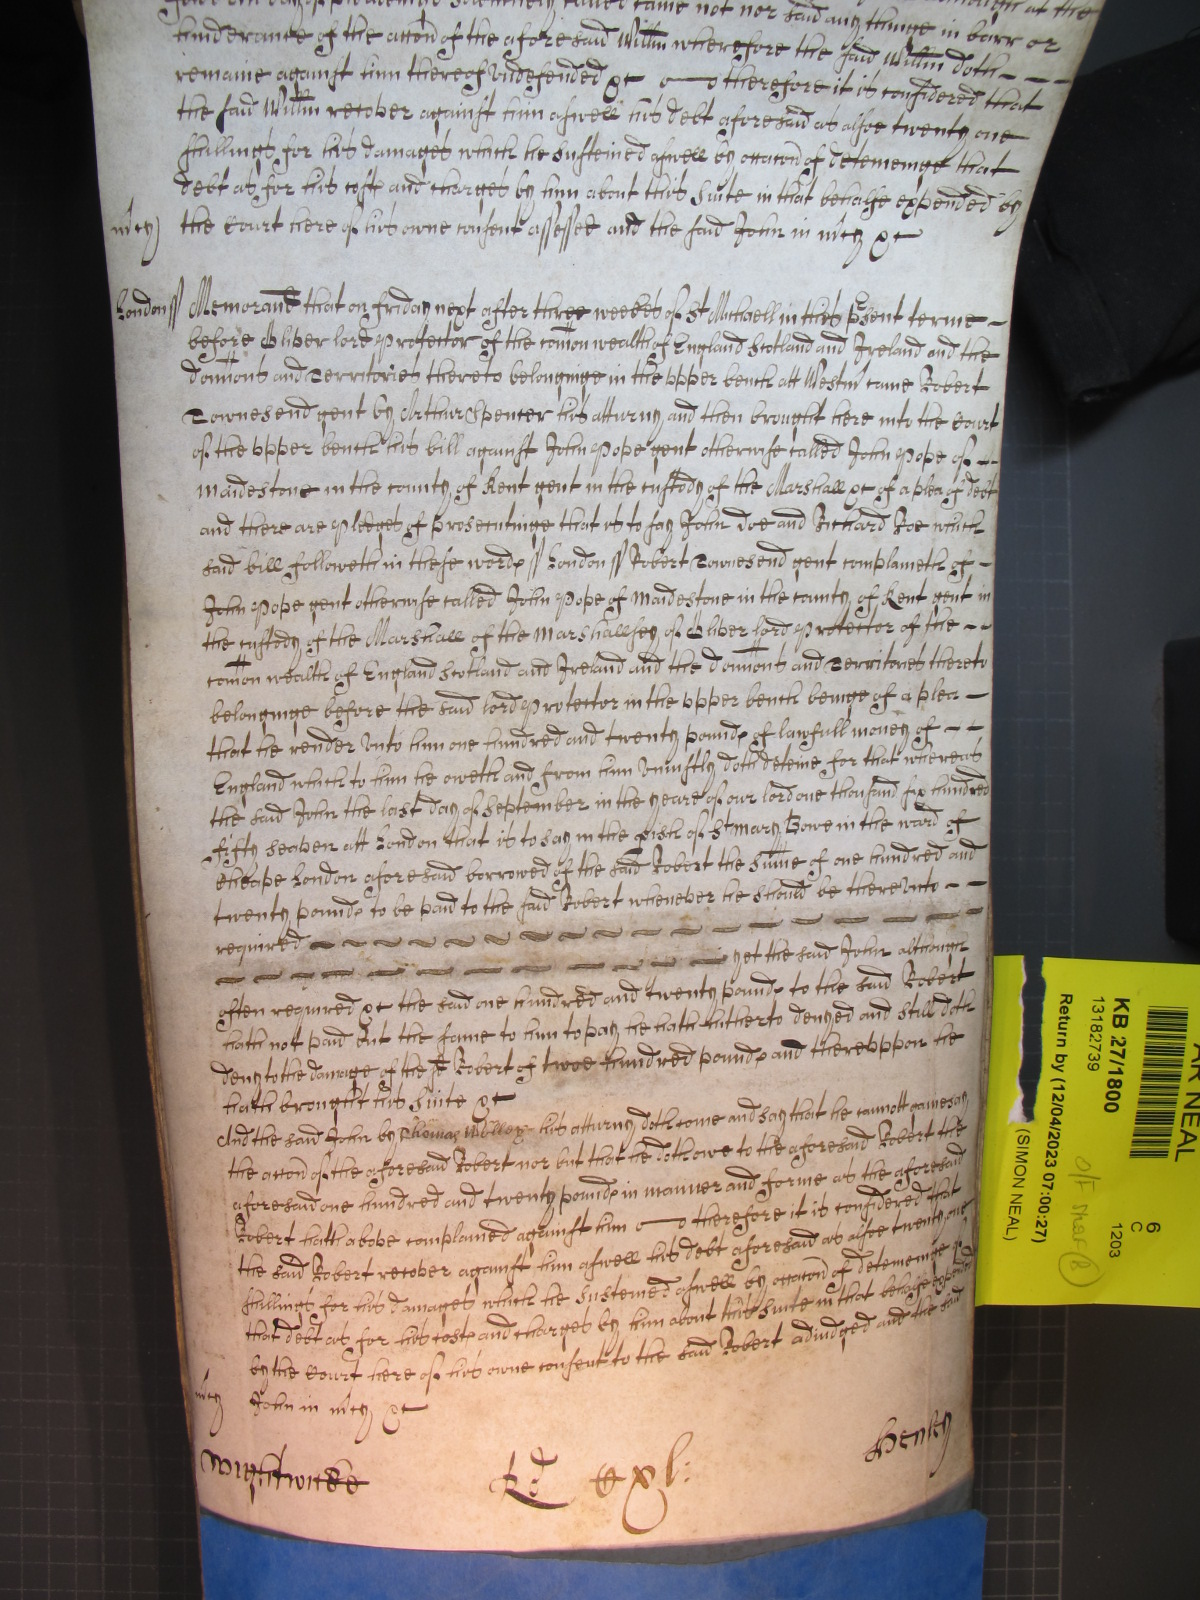 hinderance of the accon̄ of the aforesaid Willm̄ wherefore the said Willm̄ doth
remaine against him thereof Undefended &c therefore it is considered that
the said Willm̄ recover against him aswell his debt aforesaid as alsoe twenty one
shillings for his damages which he susteined aswell by occacōn of deteineinge that
debt as for his costs and charges by him about this suite in that behalfe expended by
mcy the Court here of his owne consent assessed and the said John in mcy &c
London ss Memorand̄ that on friday next after three weekes of St Michaell in this p̄sent terme
before Oliver lord Protector of the com̄on wealth of England Scotland and Ireland and the
domīons and Territories thereto belonginge in the vpper bench att Westm̄ came Robert
Townesend gent by Arthur Spencer his atturny and then brought here into the Court
of the vpper bench his bill against John Pope gent otherwise called John Pope of
Maidestone in the county of Kent gent in the custody of the Marshall &c of a plea of debt
and there are pledges of prosecutinge that is to say John Doe and Richard Roe which
said bill followeth in these words ss London ss Robert Townesend gent complaineth of
John Pope gent otherwise called John Pope of Maidestone in the county of Kent gent in
the custody of the Marshall of the Marshallsey of Oliver lord Protector of the
com̄on wealth of England Scotland and Ireland and the domīons and Territories thereto
belonginge before the said lord Protector in the vpper bench beinge of a plea
that he render Unto him one hundred and twenty pounds of lawfull money of
England which to him he oweth and from him Uniustly doth deteine for that whereas
the said John the last day of September in the yeare of our lord one thousand six hundred
fifty seaven att London that is to say in the p̄ish of St Mary Bowe in the ward of
Cheape London aforesaid borrowed of the said Robert the sum̄e of one hundred and
twenty pounds to be paid to the said Robert whenever he should be thereUnto
required
yet the said John although
often required &c the said one hundred and twenty pounds to the said Robert
hath not paid but the same to him to pay he hath hitherto denyed and still doth
deny to the damage of the sd Robert of twoe hundred pounds and therevppon he
hath brought his suite &c
And the said John by Thomas his atturny doth come and say that he cannott gainesay
the accon̄ of the aforesaid Robert nor but that he doth owe to the aforesaid Robert the
aforesaid one hundred and twenty pounds in manner and forme as the aforesaid
Robert hath above complained against him therefore it is considered that
the said Robert recover against him aswell his debt aforesaid as alsoe twenty one
shillings for his damages which he susteined aswell by occacōn of deteineinge
that debt as for his costs and charges by him about this suite in that behalfe expended
by the Court here of his owne consent to the said Robert adiudged and the said
mcy John in mcy &c
Henley
Wightwicke
AR NEAL
KB 27/1800
13182739
Return by (12/04/2023 07:00:27)
(SIMON NEAL)
6
C
1203